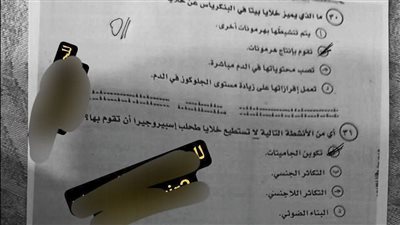 ٣٠- ما الذي يميز خلايا بيتا في البنكرياس عن خلايا
أ) يتم تنشيطها بهرمونات أخرى.
تقوم بإنتاج هرمونات.
تصب محتوياتها في الدم مباشرة.
تعمل إفرازاتها على زيادة مستوى الجلوكوز في الدم.
٣١- أي من الأنشطة التالية لا تستطيع خلايا طحلب اسبيروجيرا أن تقوم بها؟
تكوين الجاميتات.
التكاثر الجنسي.
التكاثر اللاجنسي.
البناء الضوئي.